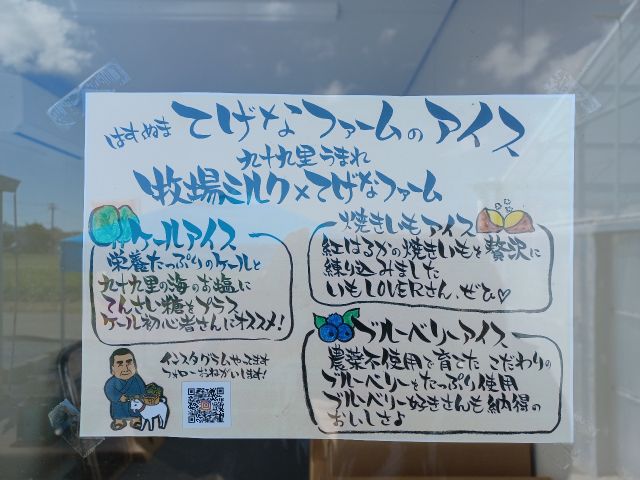 はすぬま てげなファームのアイス
九十九里うまれ
牧場ミルク×てげなファーム
ケールアイス
栄養たっぷりのケールと
九十九里の海のお塩に
てんさい糖をプラス
ケール初心者さんにオススメ!
焼きいもアイス
紅はるかの焼きいもを贅沢に
練り込みました
いもLOVERさん、ぜひ♡
ブルーベリーアイス
農薬不使用で育てたこだわりの
ブルーベリーをたっぷり使用
ブルーベリー好きさんも納得の
おいしさよ
インスタグラムやってます
フォローおねがいします!